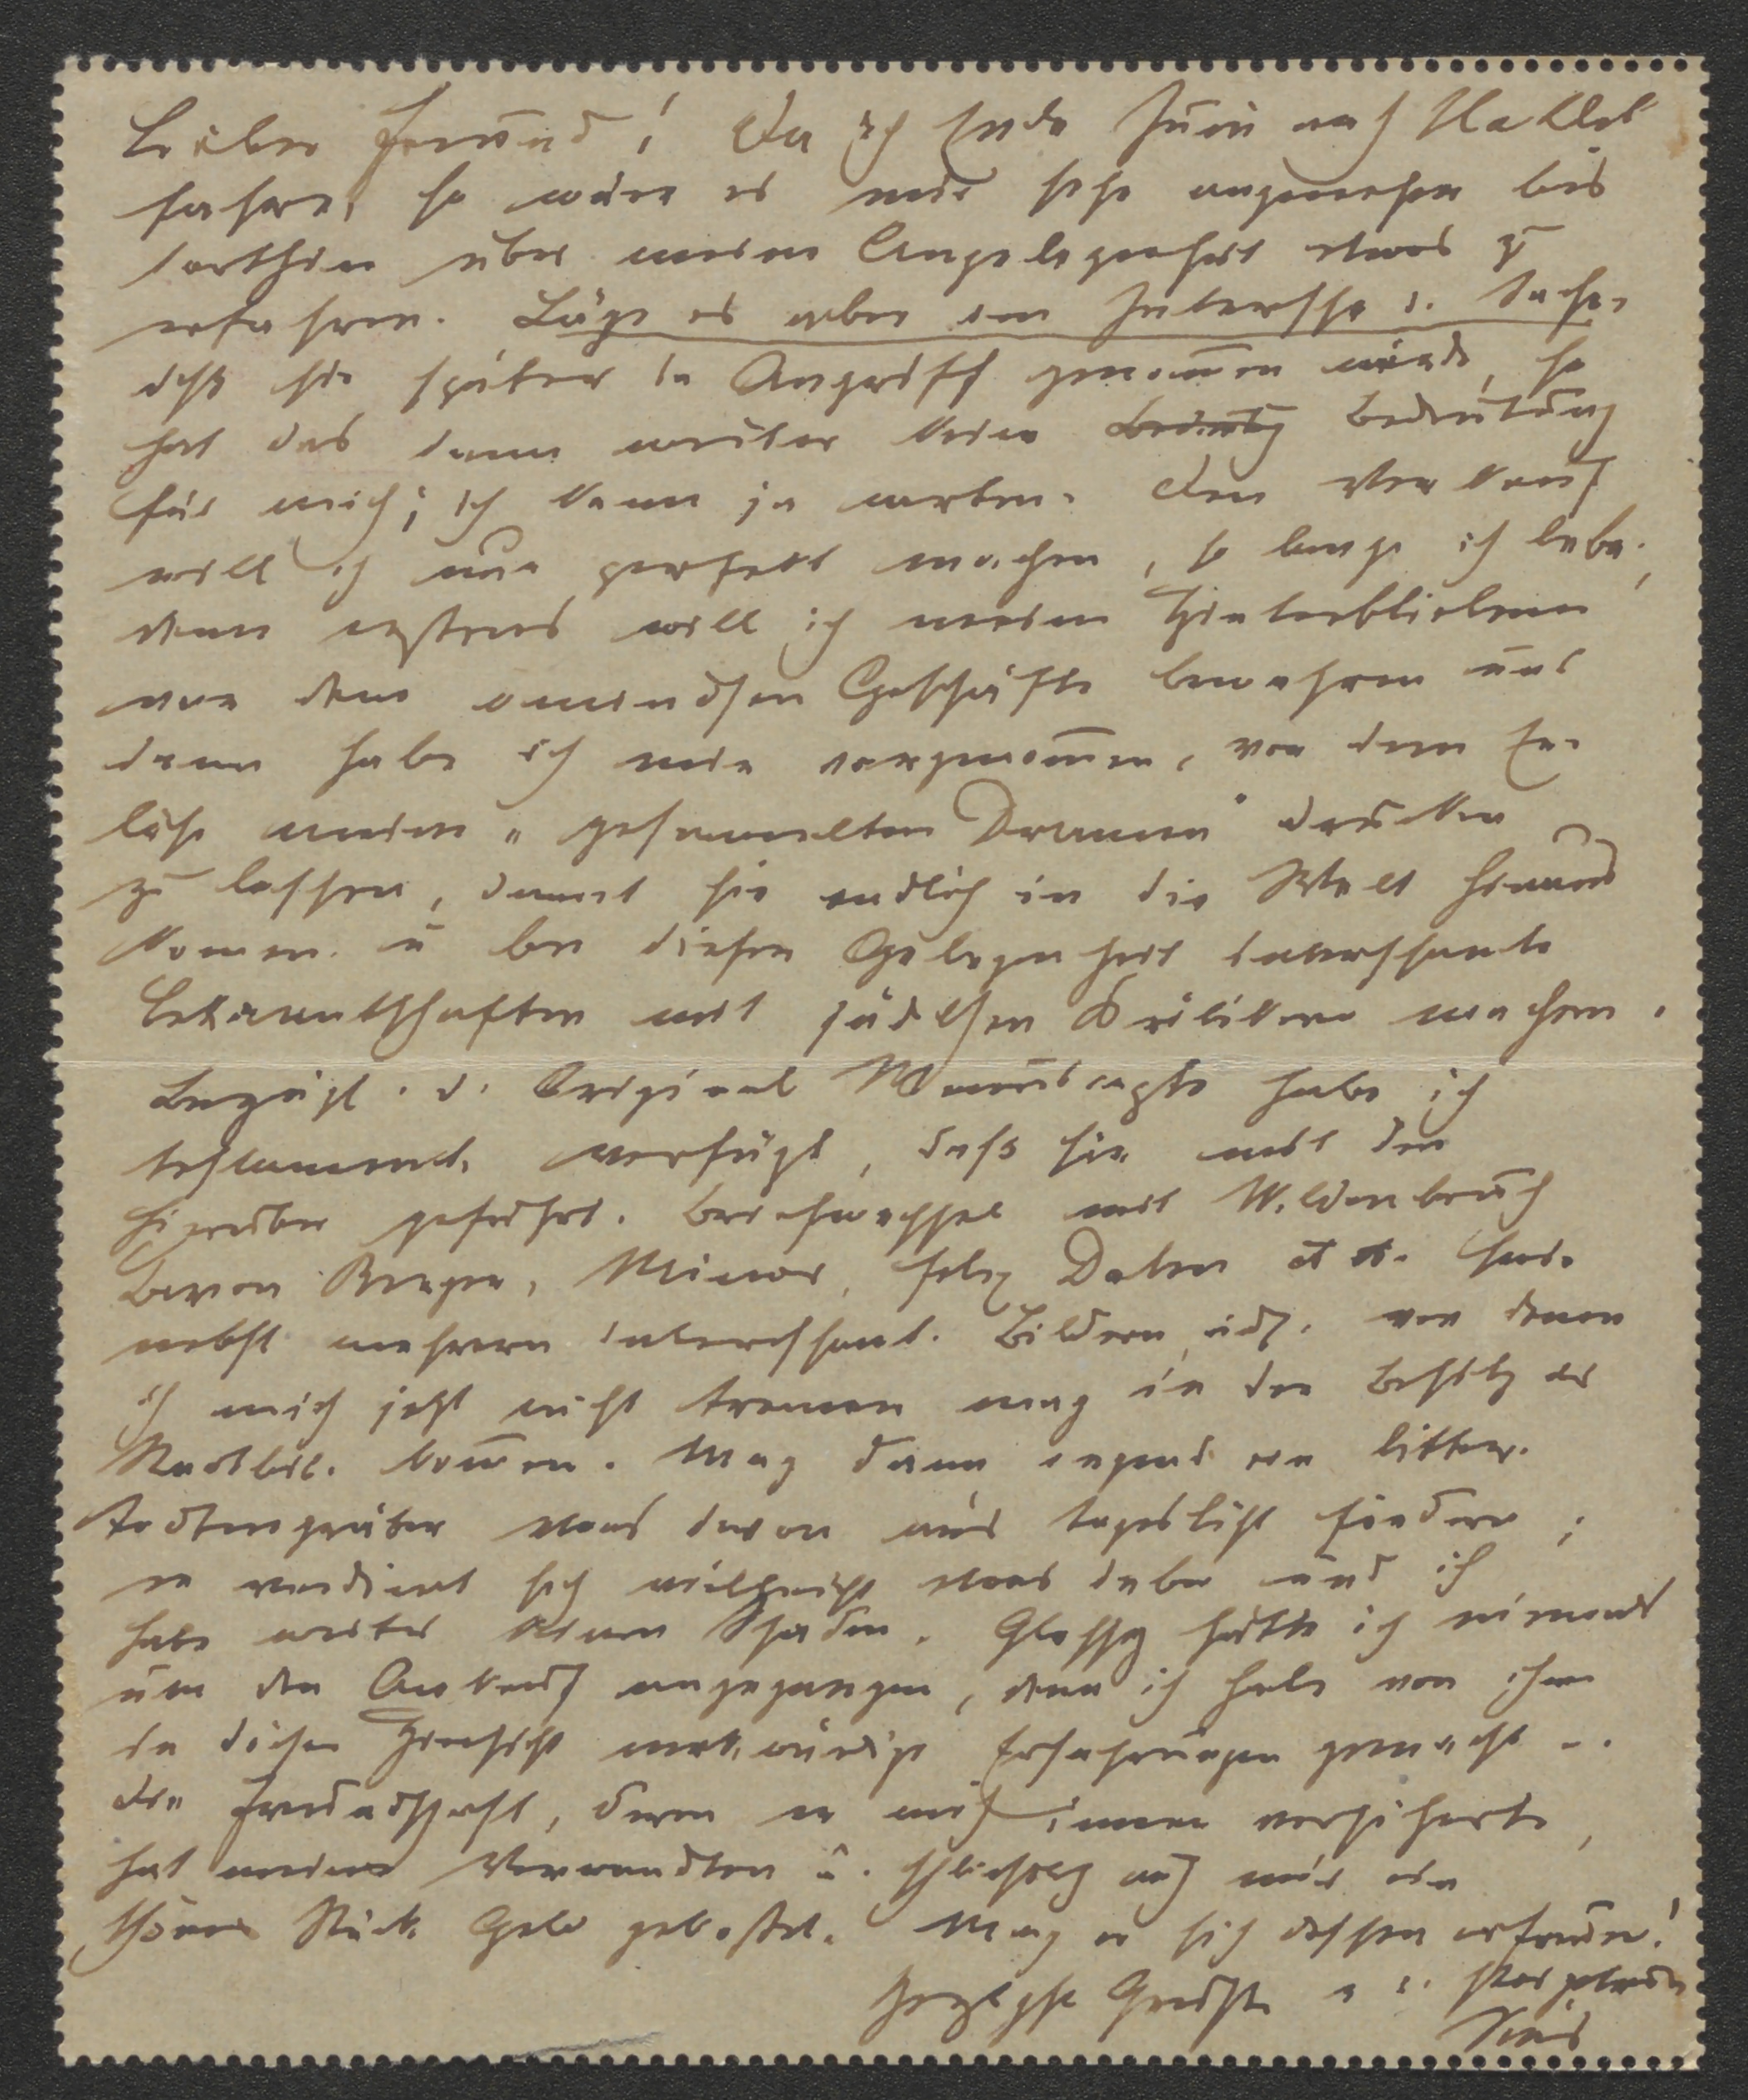 Lieber Freund! Da ich Ende Juni nach
fahre, so wäre es mir sehr angenehm bis
dorthin über meine Angelegenheit etwas zu
erfahren. Läge es aber im Interesse d. Sache,
daß sie später in Angriff genommen würde, so
hat das dann weiter keine Bedeutung
für mich; ich kann ja warten. Den Verkauf
will ich nur perfekt machen, so lange ich lebe;
denn erstens will ich meine Hinterbliebenen
vor dem Geschäfte bewahren und
dann habe ich mir vorgenommen, von dem Er-
löse meine „gesammelten Dramen" drucken
zu lassen, damit sie endlich in die Welt hinaus
kommen u bei dieser Gelegenheit interessante
Bekanntschaften mit jüdischen Kritikern machen.
Bezügl. d. Original Manuscripte habe ich
testament. verfügt, daß sie mit den
hierüber geführt. Briefwechsel mit Wildenbruch
Baron Berger, Minor, Felix Dahn etc.
nebst mehrern interessant. Bildern von denen
ich mich jetzt nicht trennen mag in den Besitz der
kommen. Mag dann irgend ein litter.
Todtengräber etwas davon ans Tageslicht fördern;
er verdient sich vielleicht etwas dabei und ich
habe weiter keinen Schaden. Glossy hätte ich niemals
um den Ankauf angegangen, denn ich habe von ihm
in dieser Hinsicht merkwürdige Erfahrungen gemacht -.
die Freundschaft, deren er mich immer versicherte,
hat meine Verwandten u. schließlich auch mich ein
schönes Stück Geld gekostet. Mag er sich dessen erfreuen!
Herzlichste Grüße